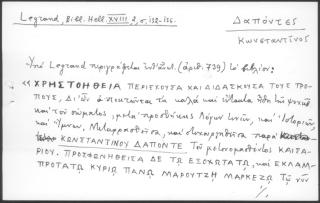 Legrand, Bibl. Hell. XVIII 2, σ. 152-156.
ΔΑΠΟΝΤΕΣ
Κωνσταντῖνος
Ὑπὸ Legrand περιγράφεται (ἀριθ. 739) τὸ βιβλίον:
« ΧΡΗΣΤΟΗΘΕΙΑ ΠΕΡΙΕΧΟΥΣΑ ΚΑΙ ΔΙΔΑΣΚΟΥΣΑ ΤΟΥΣ ΤΡΟ-
ΠΟΥΣ, ΔΙ' ὧν ἀποκτῶνται τὰ καλὰ καὶ ἤθη τῆς ψυχῆς
καὶ τοῦ σώματος, μετὰ προσθήκης λόγων τινῶν, καὶ Ἱστοριῶν,
καὶ Ὕμνων, Μεταφρασθεῖσα, καὶ συναρμοσθεῖσα παρὰ
ΚΩΝΣΤΑΝΤΙΝΟΥ ΔΑΠΟΝΤΕ Τοῦ μετονομασθέντος ΚΑΙΣΑ-
ΡΙΟΥ. ΠΡΟΣΦΩΝΗΘΕΙΣΑ ΔΕ Τῷ ΕΞΟΧΩΤΑΤῼ, ΚΑΙ ΕΚΛΑΜ-
ΠΡΟΤΑΤῼ ΚΥΡΙῼ ΠΑΝῼ ΜΑΡΟΥΤΖΗ ΜΑΡΚΕΖῼ Τῷ νῦν